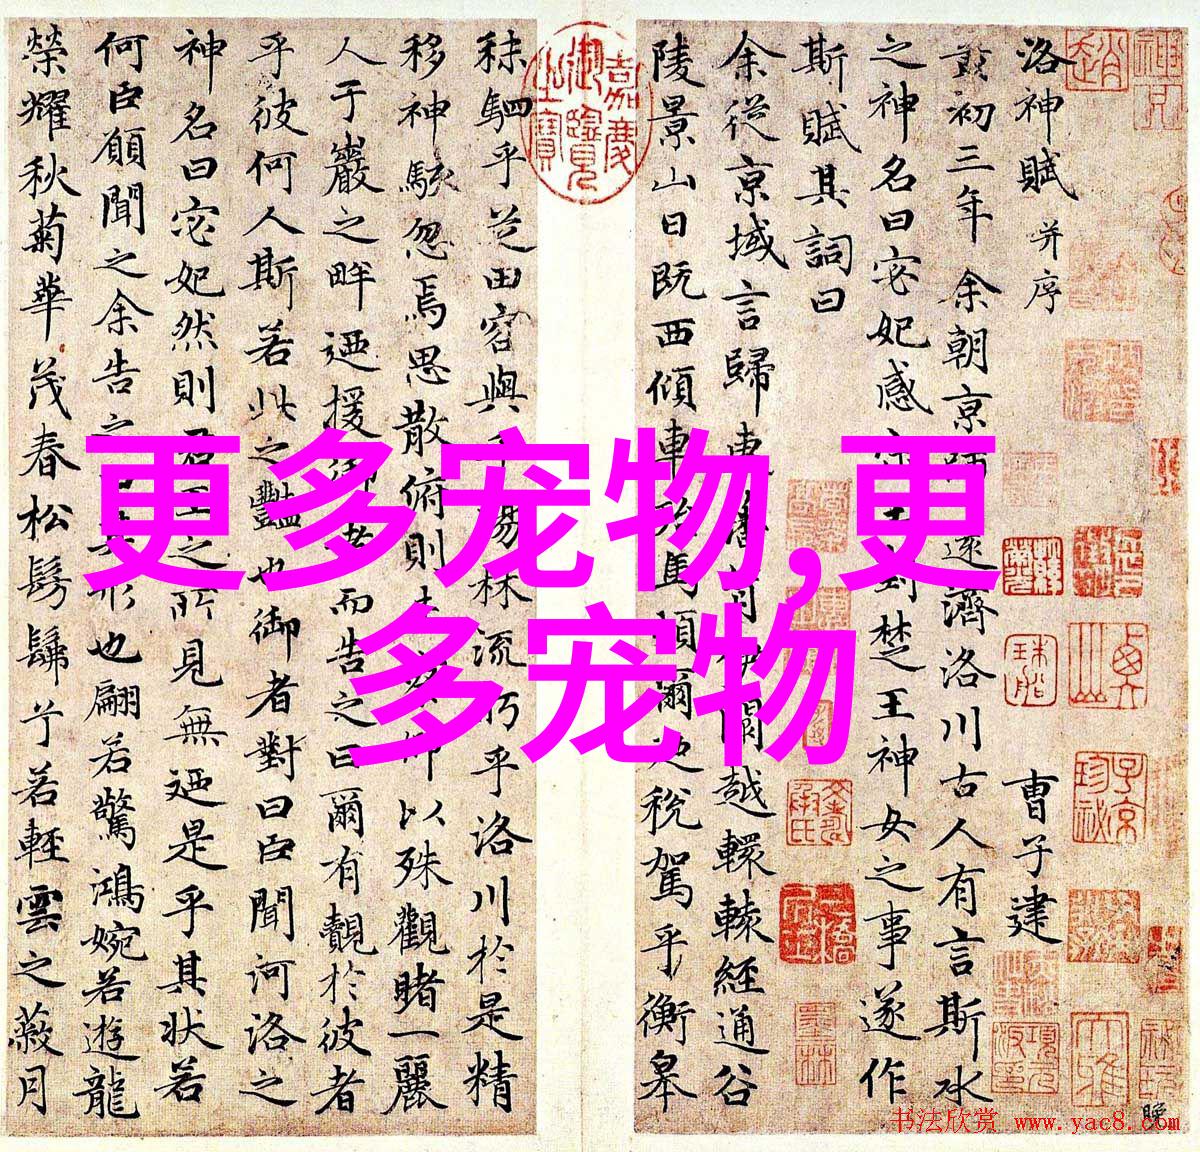 洛神賦 并序
曹子建
黄初三年余朝京師還濟洛川古人有言斯水
之神名曰宓妃感宋玉對楚王神女之事遂作
斯賦其詞曰
余從京域言歸東藩背伊闕越轘轅經通谷
陵景山日既西傾車殆馬煩爾迺稅駕乎衡皋
秣駟乎芝田容與乎楊林流眄乎洛川於是精
移神駭忽焉思散俯則未察仰以殊觀睹一麗
人于巖之畔迺援御者而告之曰爾有覿於彼者
乎彼何人斯若此之豔也御者對曰臣聞河洛之
神名曰宓妃然則君王之所見無迺是乎其狀若
何臣願聞之余告之曰其形也翩若驚鴻婉若遊龍
榮耀秋菊華茂春松髣髴兮若輕雲之蔽月
嘉慶御覽之寶
更多宠物,更
多宠物
书法欣赏 www.yac8.com